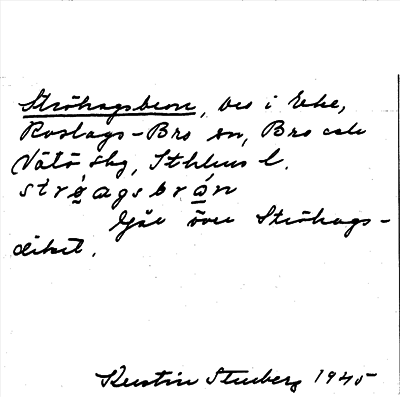 Ströhagsbron, bro i Eke,
Roslags-Bro sn, Bro och
Vätö skg, Sthlms l.
strǿagsbrán
Går över Ströhags-
diket.
Kerstin Stenberg 1945